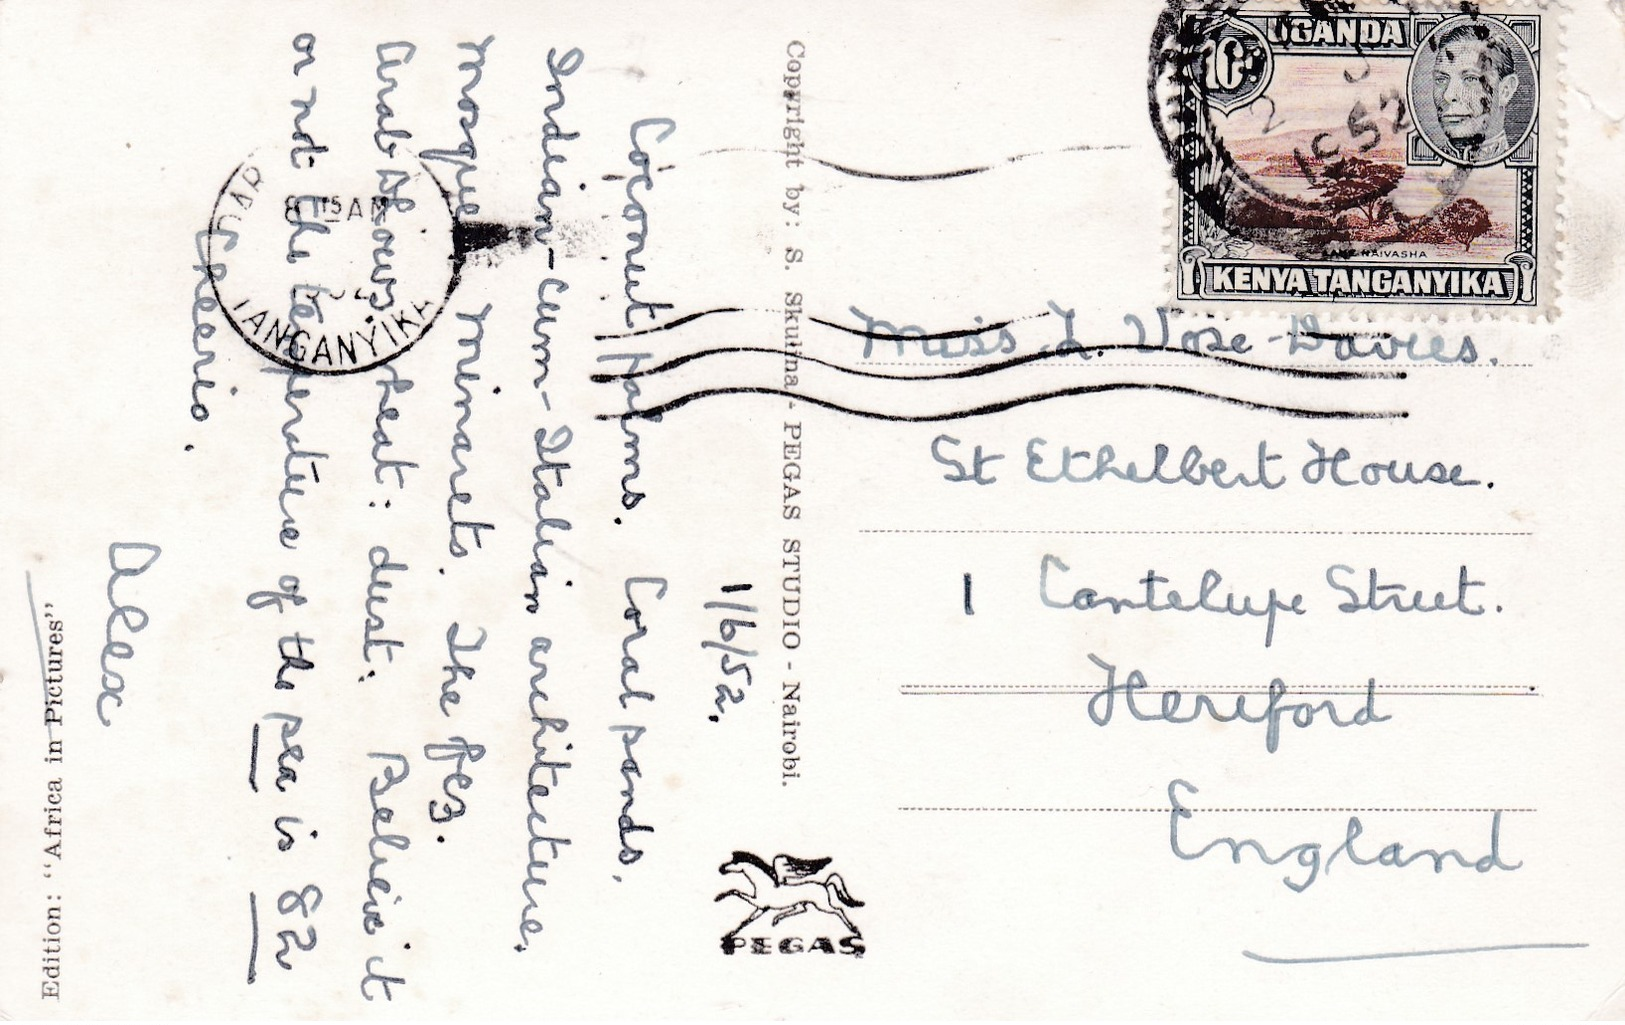 1/6/52.
Coconut palms. Coral sands.
Indian-cum-Italian architecture.
Mosque minarets. The fez.
Arab dhows, heat: dust. Believe it
or not the temperature of the sea is 82
Cheerio.
Alex
Edition: "Africa in Pictures"
Copyright by: S. Skulina - PEGAS STUDIO - Nairobi.
PEGAS
DAR
8 15 AM
TANGANYIKA
UGANDA
10c
52
LAKE NAIVASHA
KENYA TANGANYIKA
Miss L. Vose-Davies.
St Ethelbert House.
1 Cantelupe Street.
Hereford
England